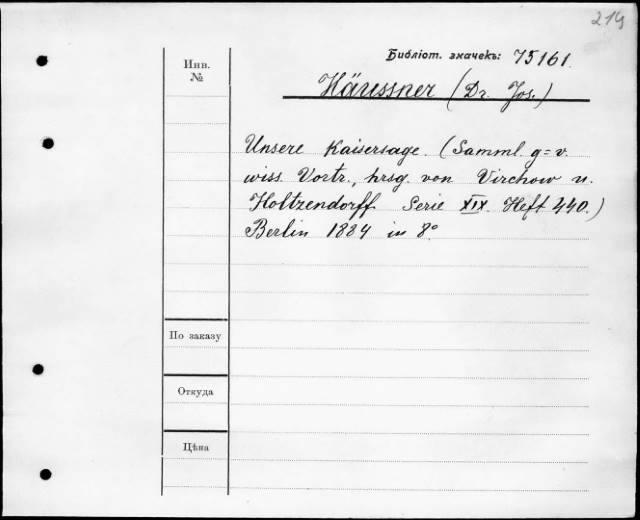 219
Библіот. значекъ: 75161.
Инв.
№
Häussner (Dr. Jos.)
Unsere Kaisersage. (Samml. g=v.
wiss. Vortr., hrsg. von Virchow u.
Holtzendorff. Serie XIX. Heft 440.)
Berlin 1884 in 8°
По заказу
Откуда
Цѣна